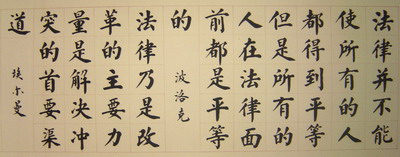 法律并不能
使所有的人
都得到平等
但是所有的
人在法律面
前都是平等
的
波洛克
法律乃是改
革的主要力
量是解决冲
突的首要渠
道
埃尔曼